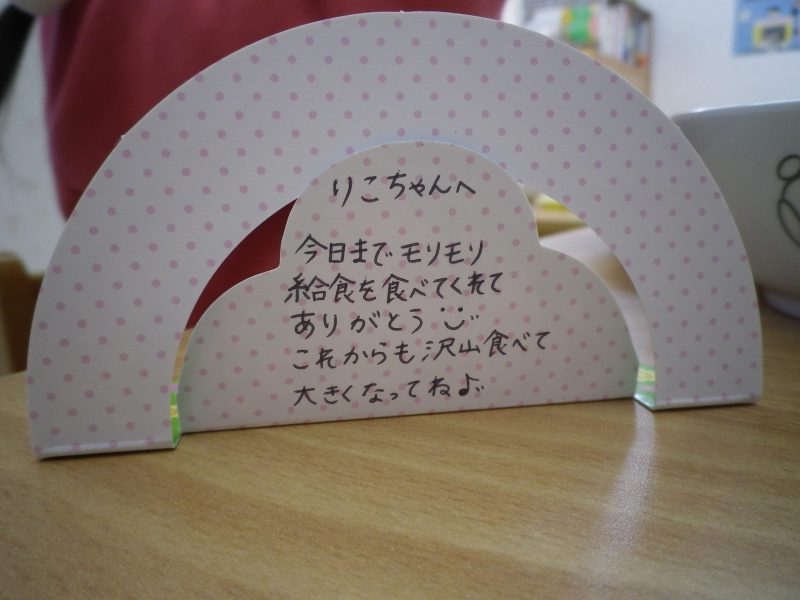 りこちゃんへ
今日までモリモリ
給食を食べてくれて
ありがとう
これからも沢山食べて
大きくなってねよ